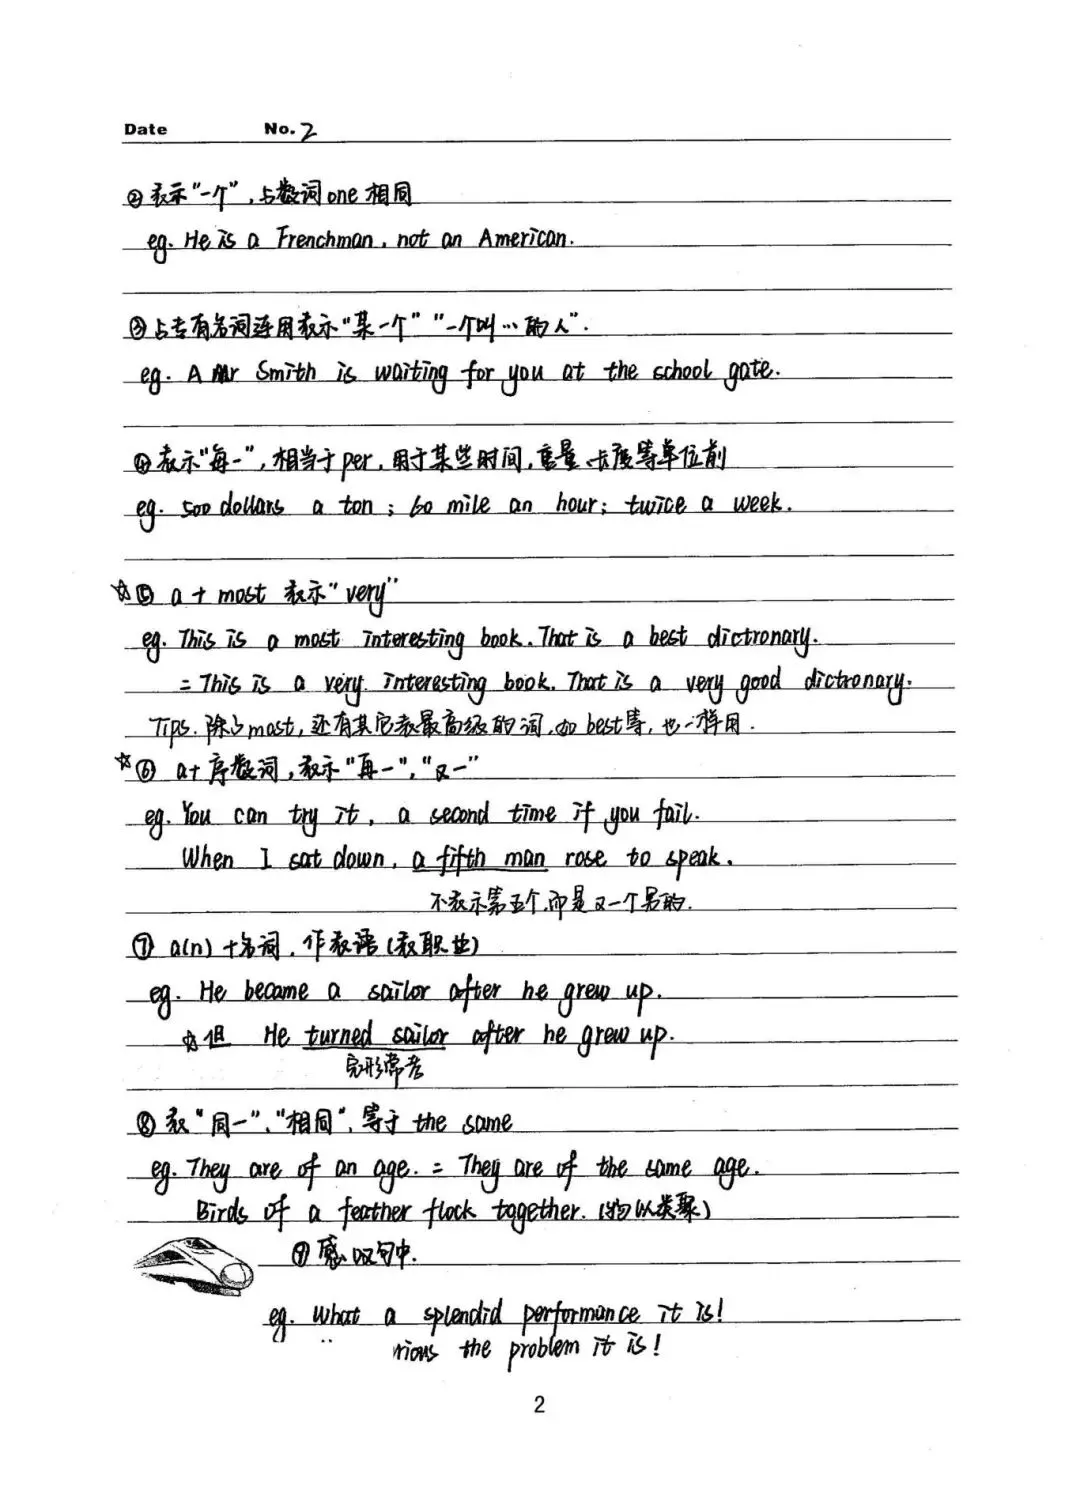 Date No. 2
② 表示"一个", 与数词one 相同
eg. He is a Frenchman, not an American.
③ 与专有名词连用表示"某一个" "一个叫…的人".
eg. A Mr Smith is waiting for you at the school gate.
④ 表示"每一", 相当于per, 用于某些时间, 重量、长度等单位前
eg. 500 dollars a ton; 60 mile an hour; twice a week.
☆⑤ a + most 表示"very"
eg. This is a most interesting book. That is a best dictronary.
= This is a very interesting book. That is a very good dictronary.
Tips. 除了most, 还有其它表最高级的词, 如best等, 也一样用.
☆⑥ a+序数词, 表示"再一", "又一"
eg. You can try it, a second time if you fail.
When I sat down, a fifth man rose to speak.
不表示第五个, 而是又一个另的.
⑦ a(n) +名词, 作表语(表职业)
eg. He became a sailor after he grew up.
☆但 He turned sailor after he grew up.
完形常考
⑧ 表"同一", "相同", 等于 the same
eg. They are of an age. = They are of the same age.
Birds of a feather flock together. (物以类聚)
⑨ 感叹句中.
eg. What a splendid performance it is!
rious the problem it is!
2